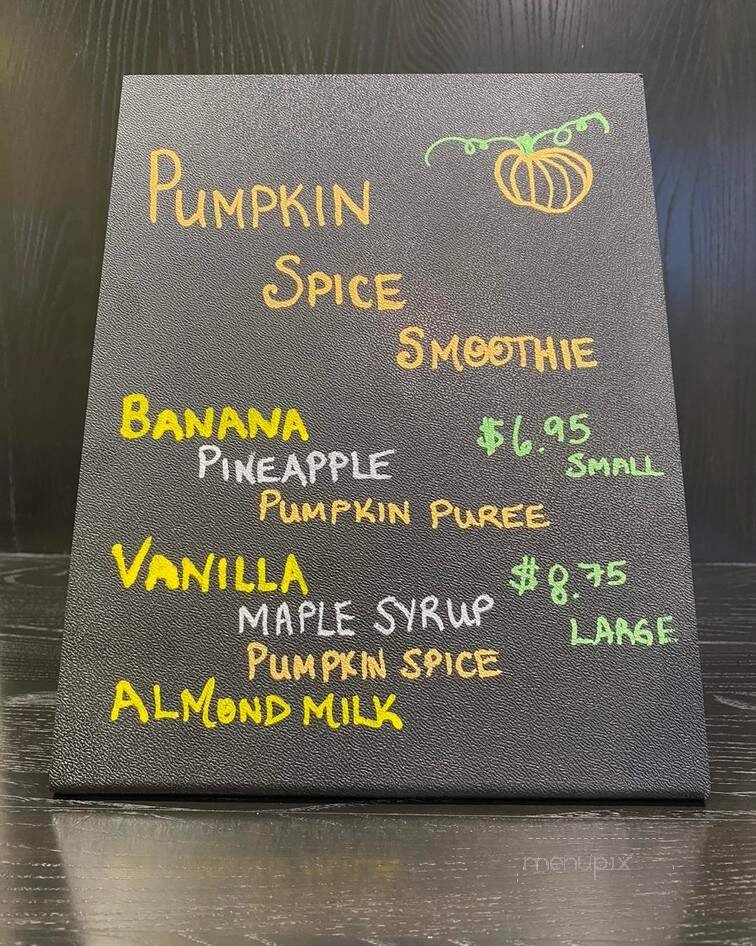 PUMPKIN
SPICE
SMOOTHIE
BANANA
$6.95
PINEAPPLE
SMALL
PUMPKIN PUREE
VANILLA
$8.75
MAPLE SYRUP
LARGE
PUMPKIN SPICE
ALMOND MILK
menupix